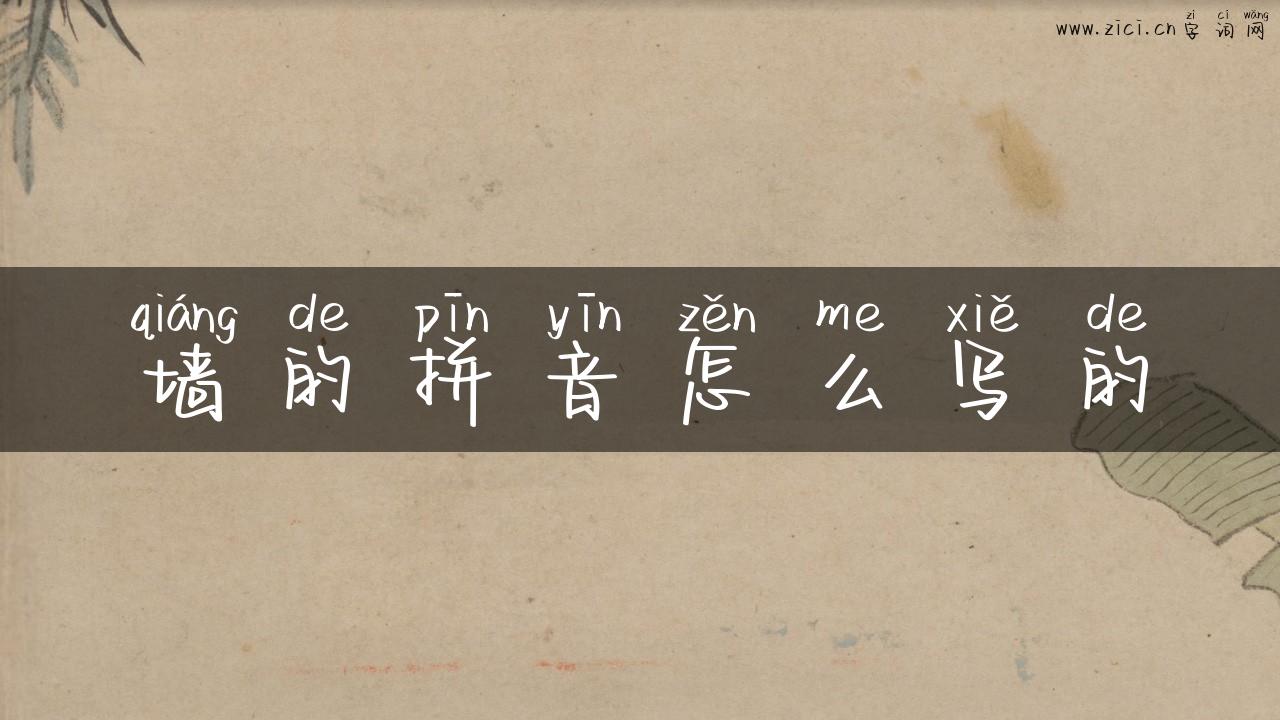 zì cí wǎng
www.zici.cn 字 词 网
qiáng de pīn yīn zěn me xiě de
墙 的 拼 音 怎 么 写 的